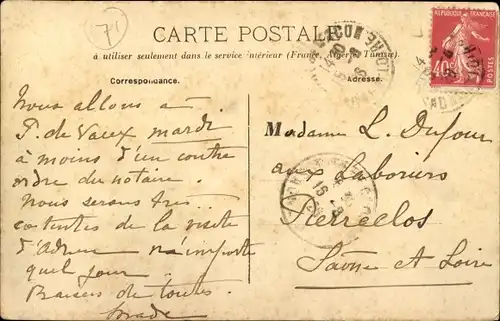 71
CARTE POSTALE
à utiliser seulement dans le service intérieur (France, Algérie, Tunisie).
Correspondance.
Adresse.
RÉPUBLIQUE FRANÇAISE
40c
Nous allons à
P. de Vaux mardi
à moins d'un contre
ordre du notaire.
Nous serons très
contentes de la visite
d'Adrien n'importe
quel jour.
Baisers de toutes.
Madame L. Dufour
aux Laboriers
Pierreclos
Saône et Loire